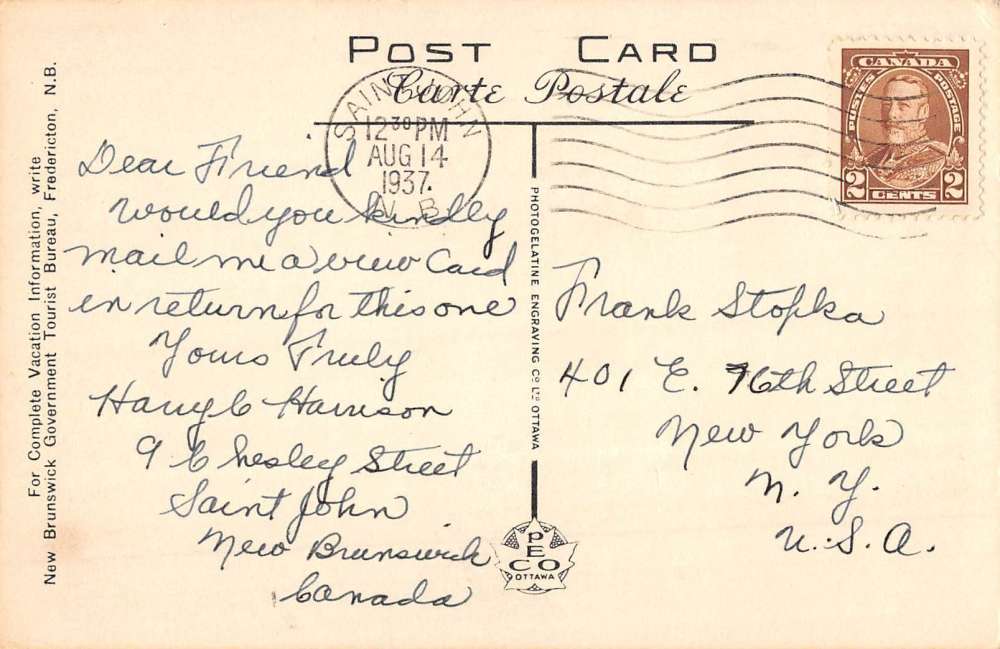 POST CARD
Carte Postale
SAINT JOHN
12 30 PM
AUG 14
1937.
N. B.
CANADA
POSTES POSTAGE
2 CENTS 2
For Complete Vacation Information, write
New Brunswick Government Tourist Bureau, Fredericton, N.B.
Dear Friend
would you kindly
mail me a view Card
in return for this one
Yours Truly
Harry C Harrison
9 Chesley Street
Saint John
New Brunswick
Canada
PHOTOGELATINE ENGRAVING CO. LTD. OTTAWA
PECO
OTTAWA
Frank Stopka
401 E. 76th Street
New York
N. Y.
U.S.A.